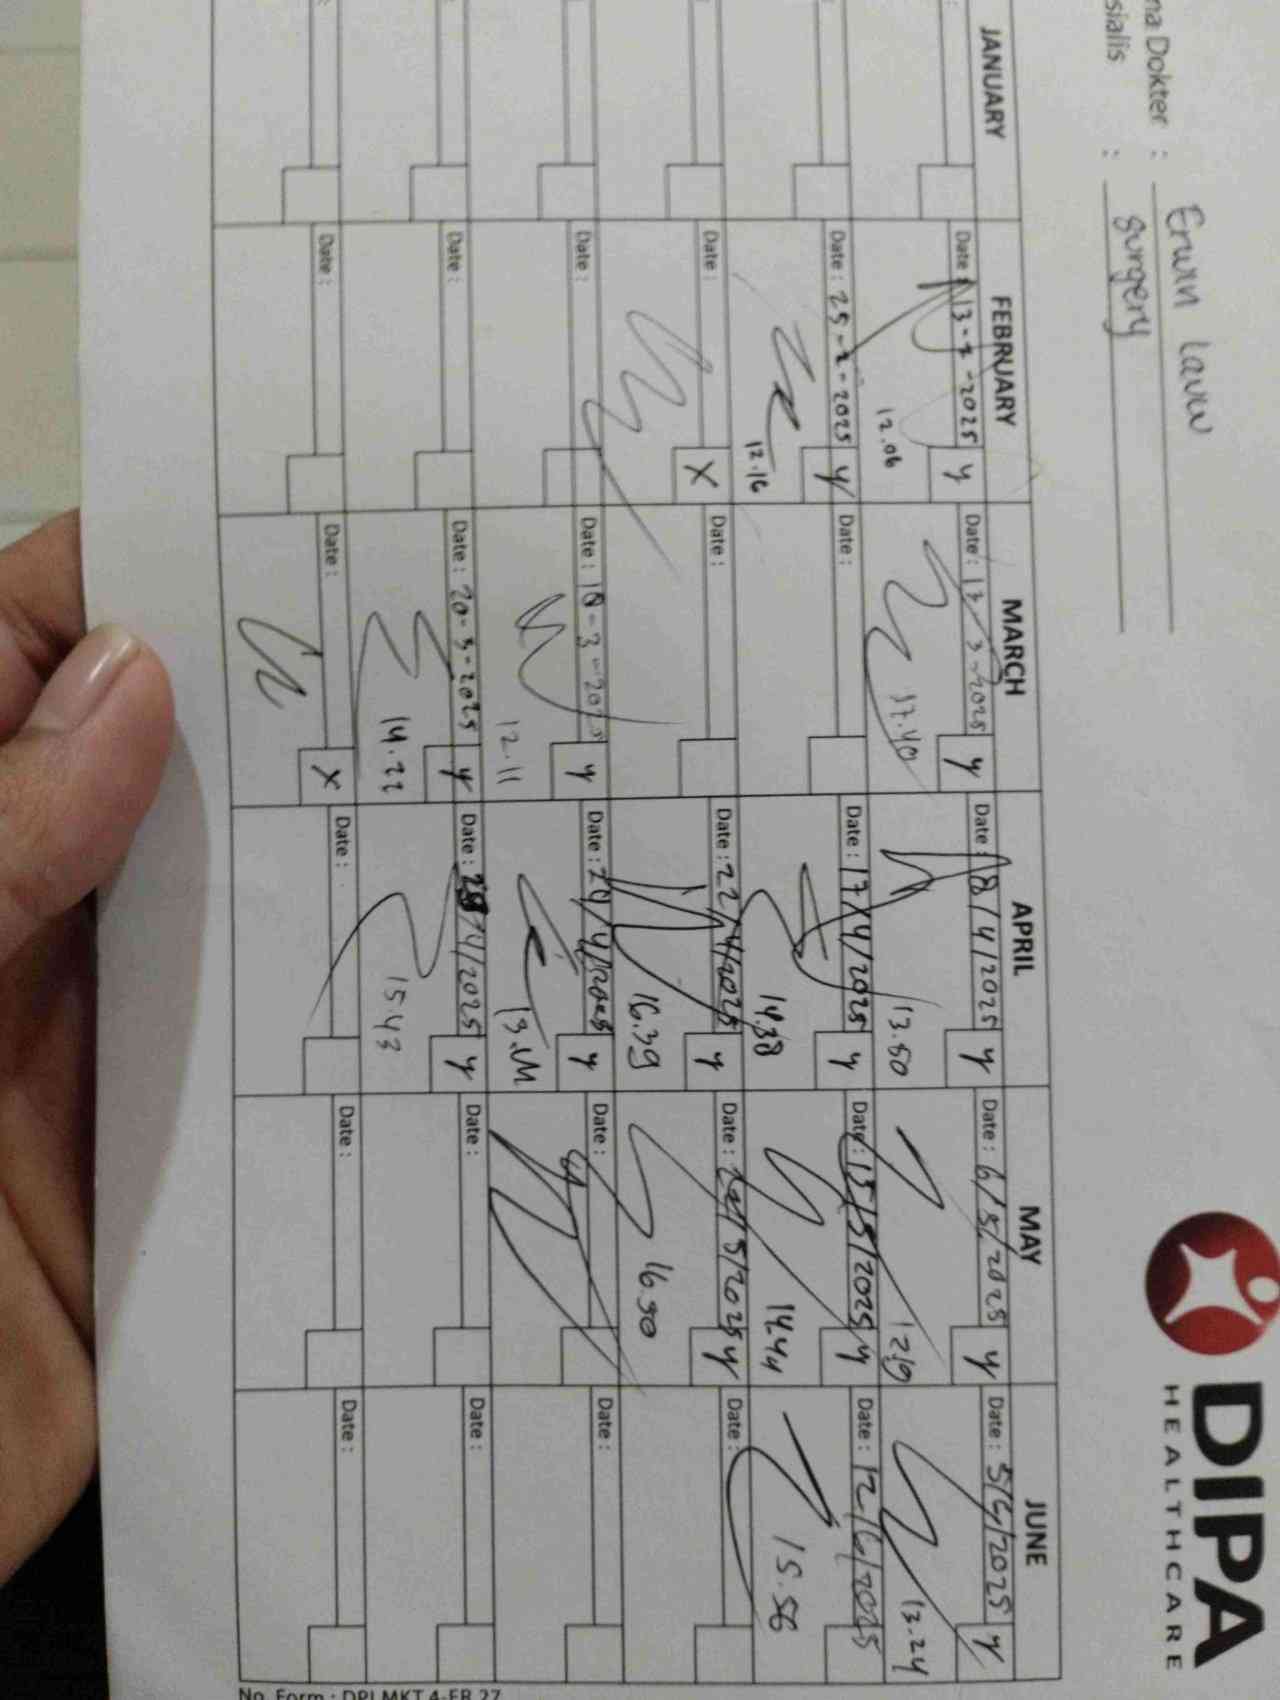 DIPA
HEALTHCARE
na Dokter : Erwin
sialis : Surgery
JANUARY FEBRUARY MARCH APRIL MAY JUNE
Date : 13-2-2025 y Date : 13-3-2025 y Date : 8/4/2025 y Date : 6/5/2025 y Date : 5/6/2025 y
12.06 17.40 13.50 13.24
Date : 25-2-2025 y Date : Date : 17/4/2025 y Date : 15/5/2025 y Date : 12/6/2025
12.16 14.38 14.44 15.56
Date : X Date : Date : 22/4/2025 y Date : /5/2025 y Date :
16.39 16.50
Date : Date : 18-3-2025 y Date : /4/2025 y Date : Date :
12.11
Date : Date : 20-3-2025 y Date : 28/4/2025 y Date : Date :
14.22 15.43
Date : Date : X Date : Date : Date :
No. Form : DPI.MKT.4-FR.27